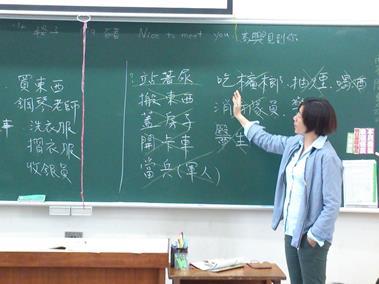 Nice to meet you 很高興見到你
買東西
鋼琴老師
洗衣服
摺衣服
收銀員
車
站著尿
搬東西
蓋房子
開卡車
當兵(軍人)
吃檳榔.抽煙.喝酒
消防隊員
醫生